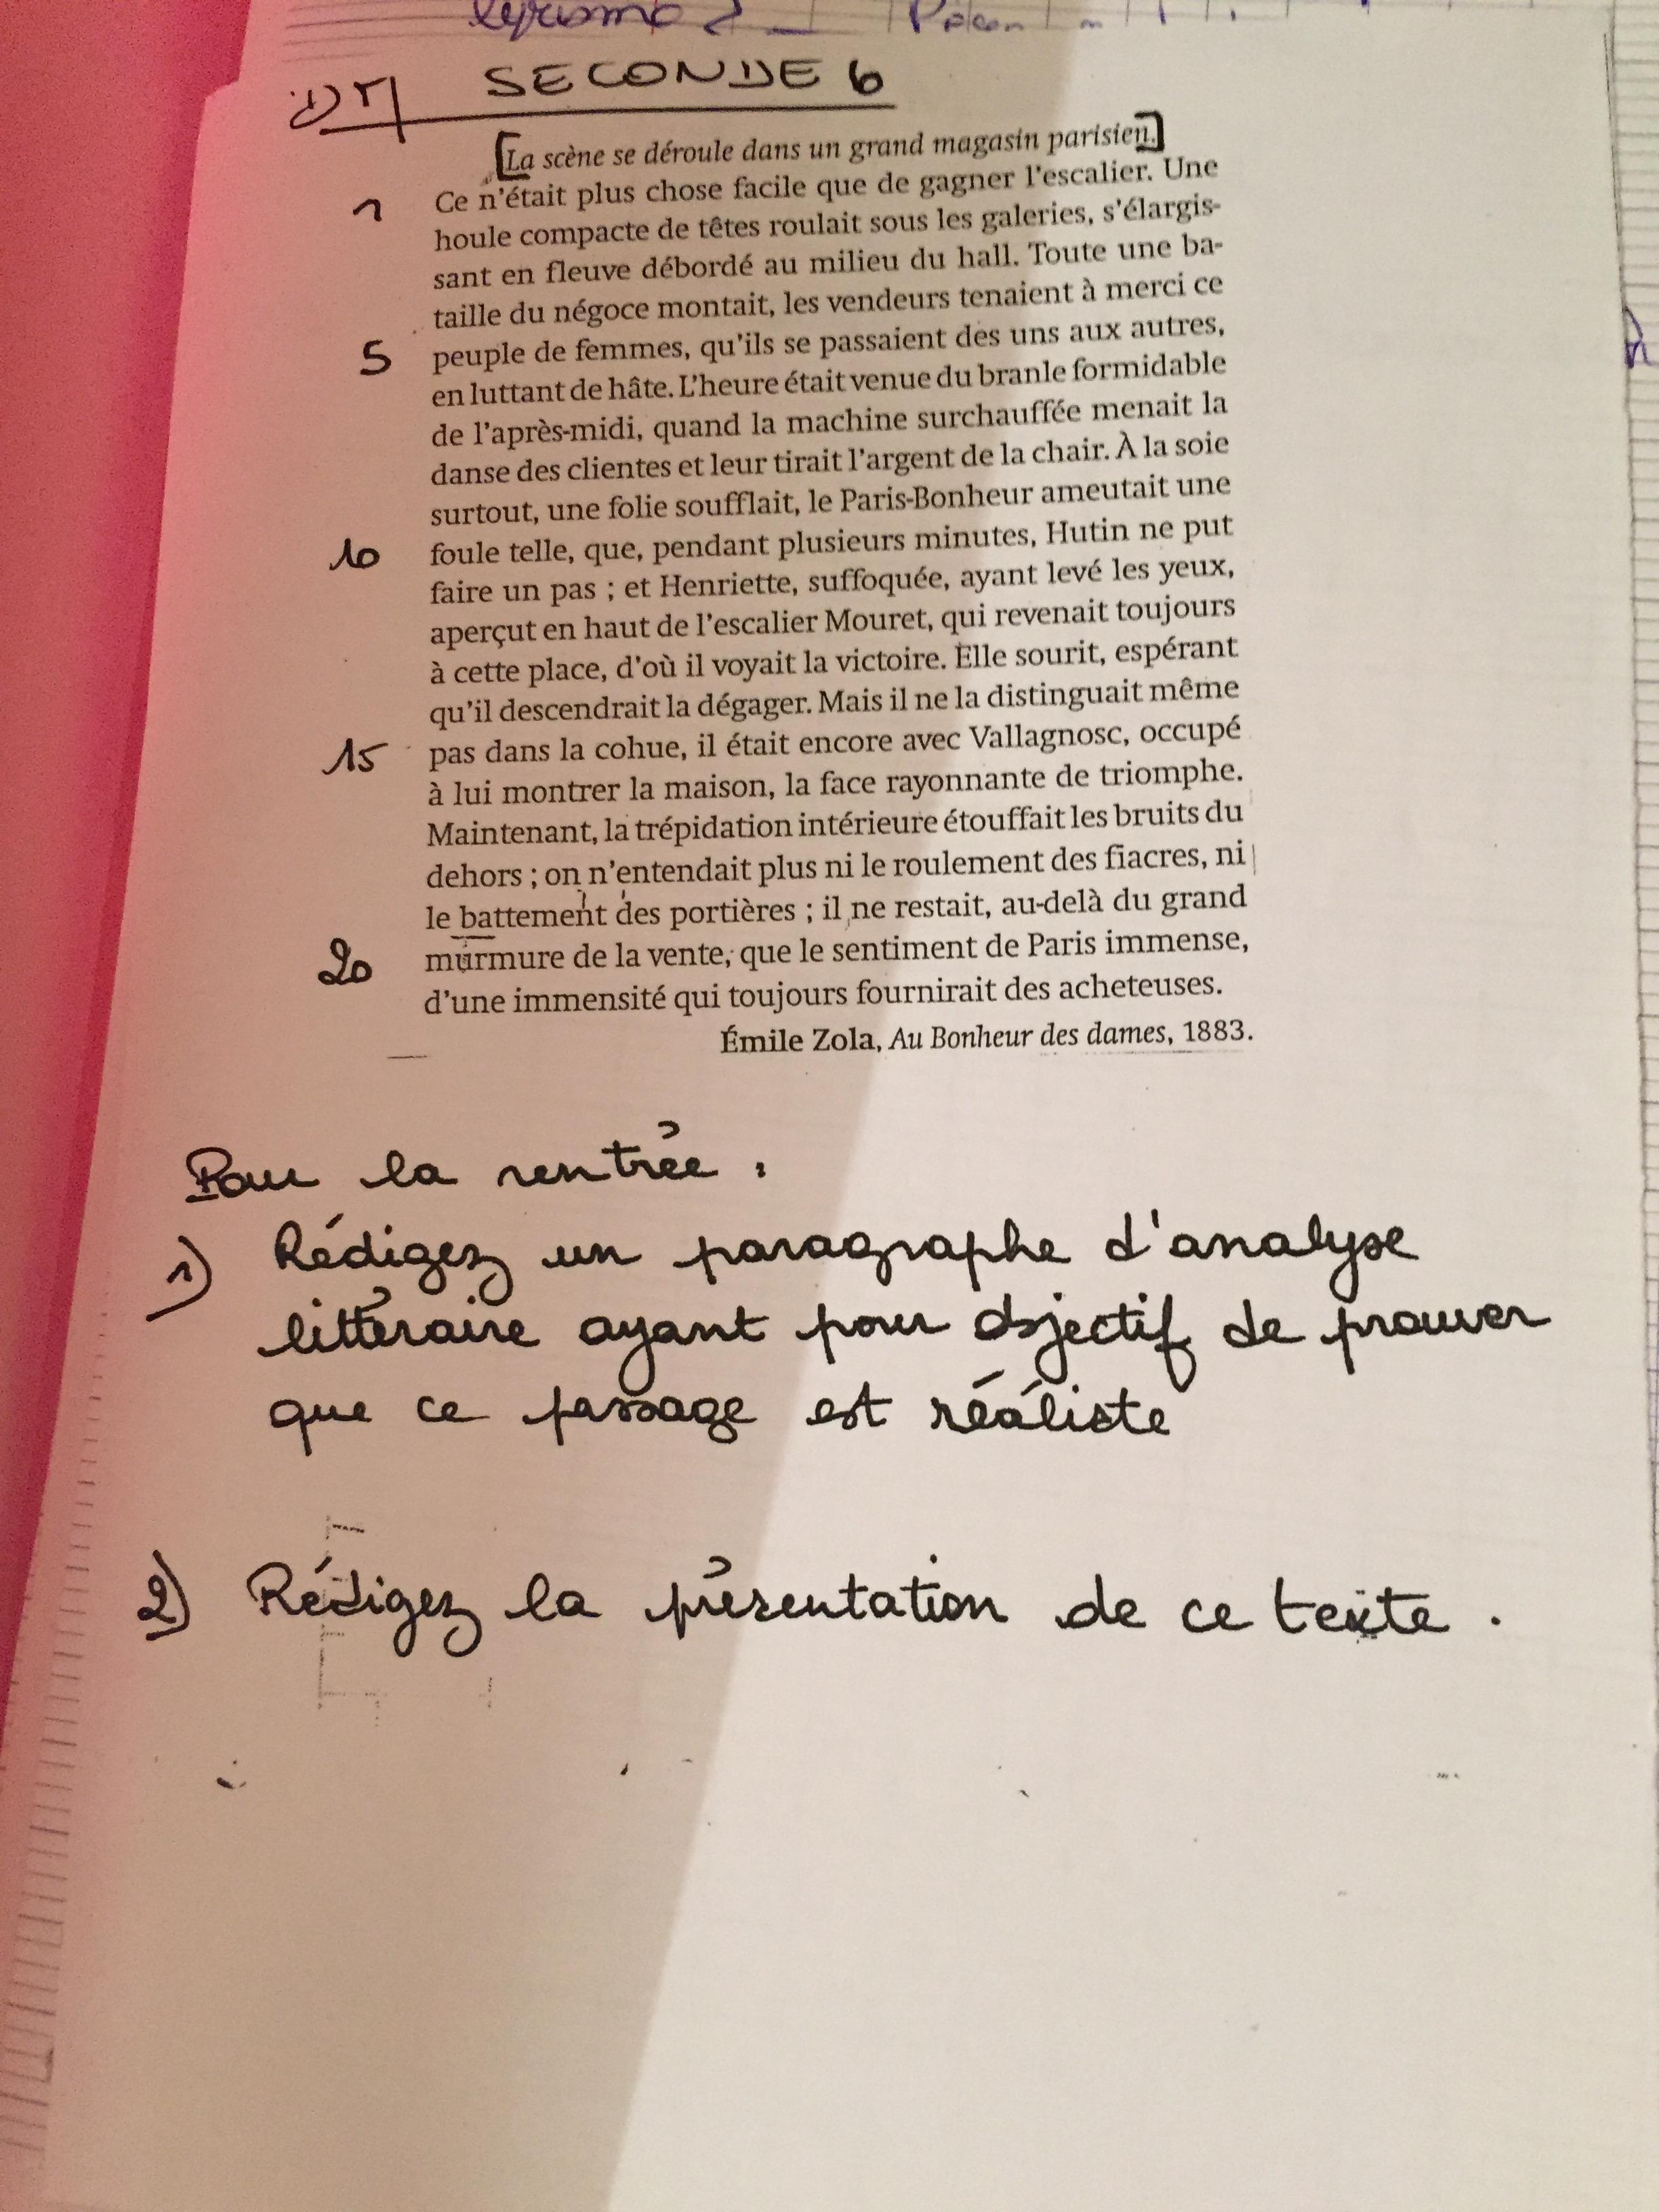 DM SECONDE 6
[La scène se déroule dans un grand magasin parisien.]
1 Ce n'était plus chose facile que de gagner l'escalier. Une
houle compacte de têtes roulait sous les galeries, s'élargis-
sant en fleuve débordé au milieu du hall. Toute une ba-
taille du négoce montait, les vendeurs tenaient à merci ce
5 peuple de femmes, qu'ils se passaient des uns aux autres,
en luttant de hâte. L'heure était venue du branle formidable
de l'après-midi, quand la machine surchauffée menait la
danse des clientes et leur tirait l'argent de la chair. À la soie
surtout, une folie soufflait, le Paris-Bonheur ameutait une
10 foule telle, que, pendant plusieurs minutes, Hutin ne put
faire un pas ; et Henriette, suffoquée, ayant levé les yeux,
aperçut en haut de l'escalier Mouret, qui revenait toujours
à cette place, d'où il voyait la victoire. Elle sourit, espérant
qu'il descendrait la dégager. Mais il ne la distinguait même
15 pas dans la cohue, il était encore avec Vallagnosc, occupé
à lui montrer la maison, la face rayonnante de triomphe.
Maintenant, la trépidation intérieure étouffait les bruits du
dehors ; on n'entendait plus ni le roulement des fiacres, ni
le battement des portières ; il ne restait, au-delà du grand
20 murmure de la vente, que le sentiment de Paris immense,
d'une immensité qui toujours fournirait des acheteuses.
Émile Zola, Au Bonheur des dames, 1883.
Pour la rentrée :
1) Rédigez un paragraphe d'analyse
littéraire ayant pour objectif de prouver
que ce passage est réaliste
2) Rédigez la présentation de ce texte .